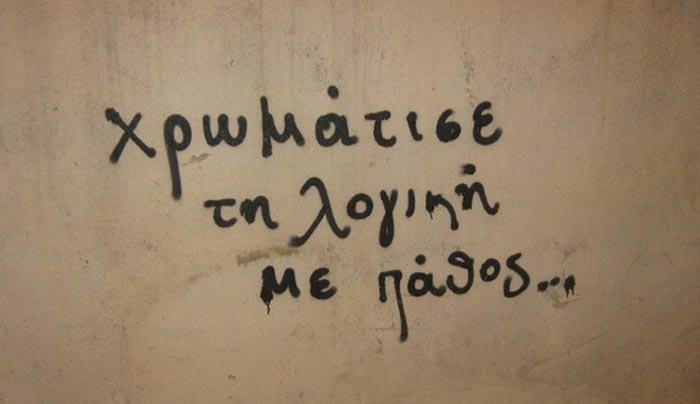 χρωμάτισε
τη λογική
με πάθος...